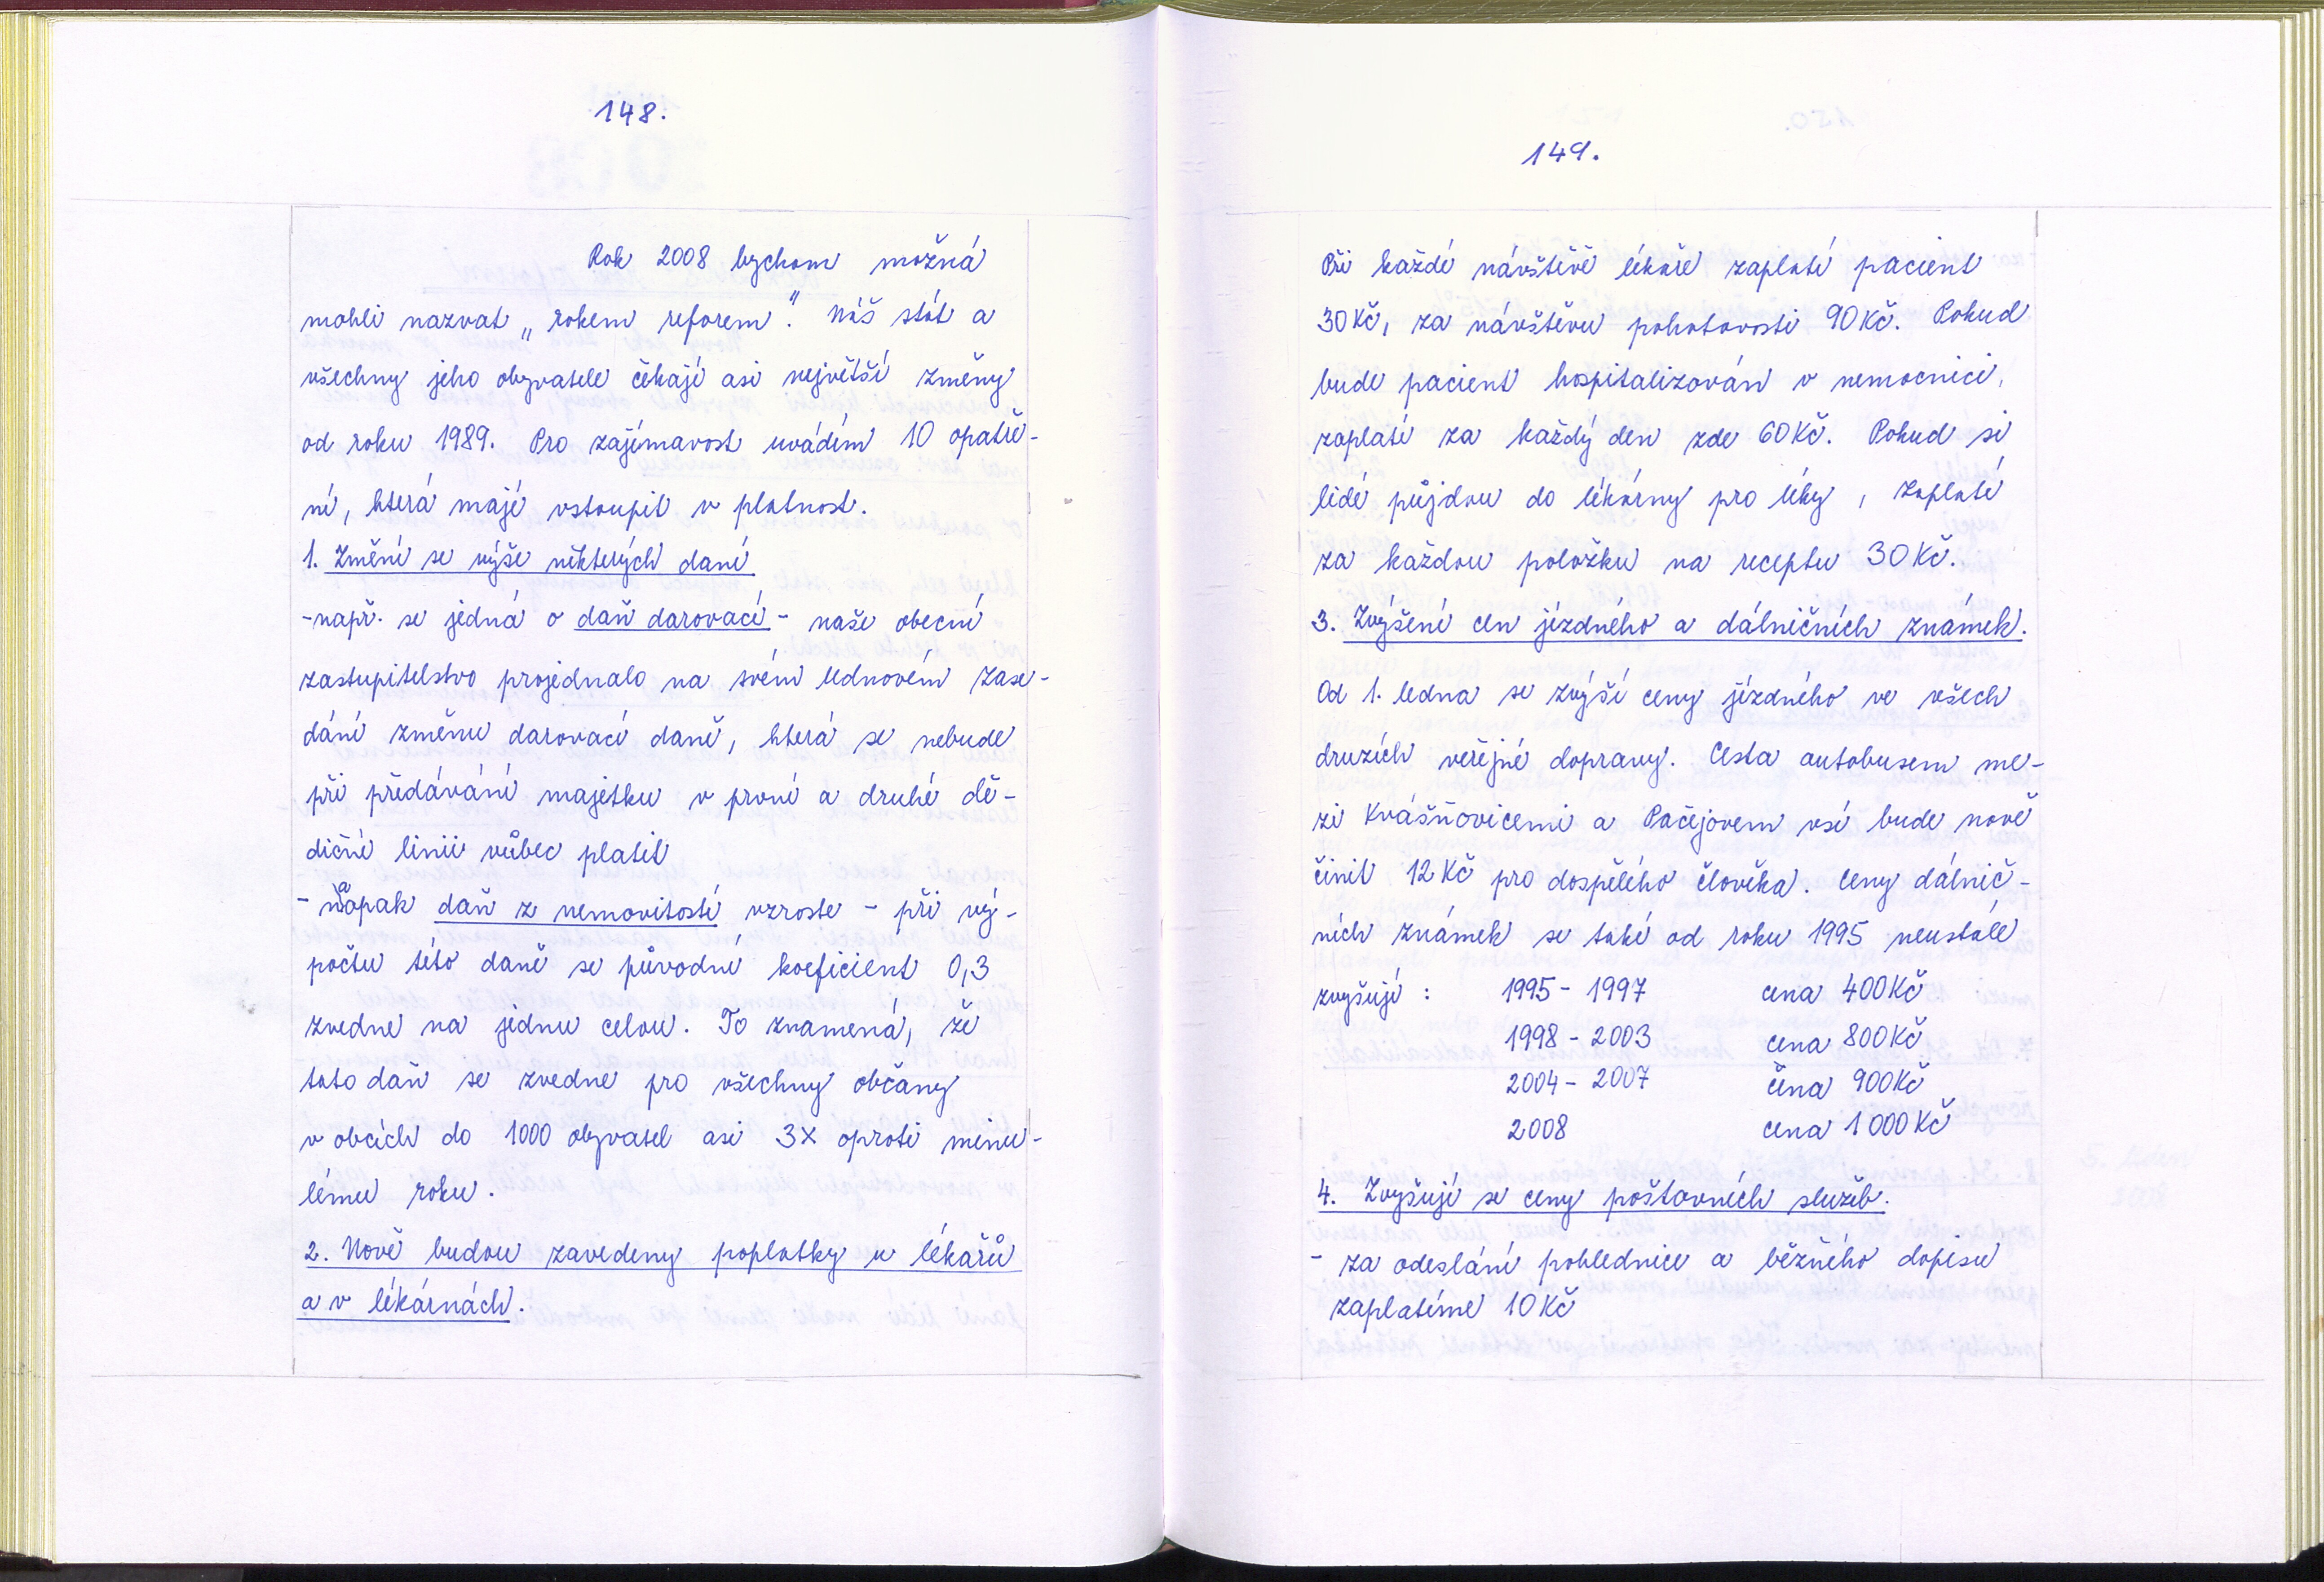 148.
Rok 2008 bychom možná
mohli nazvat „rokem reforem". Náš stát a
všechny jeho obyvatele čekají asi největší změny
od roku 1989. Pro zajímavost uvádím 10 opatře-
ní, která mají vstoupit v platnost.
1. Změní se výše některých daní
-např. se jedná o daň darovací - naše obecní
zastupitelstvo projednalo na svém lednovém zase-
dání změnu darovací daně, která se nebude
při předávání majetku v první a druhé dě-
dičné linii vůbec platit
- naopak daň z nemovitostí vzroste - při vý-
počtu této daně se původní koeficient 0,3
zvedne na jednu celou. To znamená, že
tato daň se zvedne pro všechny občany
v obcích do 1000 obyvatel asi 3x oproti minu-
lému roku.
2. Nově budou zavedeny poplatky u lékařů
a v lékárnách.
149.
Při každé návštěvě lékaře zaplatí pacient
30Kč, za návštěvu pohotovosti 90Kč. Pokud
bude pacient hospitalizován v nemocnici,
zaplatí za každý den zde 60Kč. Pokud si
lidé půjdou do lékárny pro léky, zaplatí
za každou položku na receptu 30Kč.
3. Zvýšení cen jízdného a dálničních známek.
Od 1. ledna se zvýší ceny jízdného ve všech
druzích veřejné dopravy. Cesta autobusem me-
zi Kvášňovicemi a Pačejovem vsí bude nově
činit 12Kč pro dospělého člověka. Ceny dálnič-
ních známek se také od roku 1995 neustále
zvyšují : 1995 - 1997 cena 400Kč
1998 - 2003 cena 800Kč
2004 - 2007 cena 900Kč
2008 cena 1000Kč
4. Zvyšují se ceny poštovních služeb.
- za odeslání pohlednice a běžného dopisu
zaplatíme 10Kč